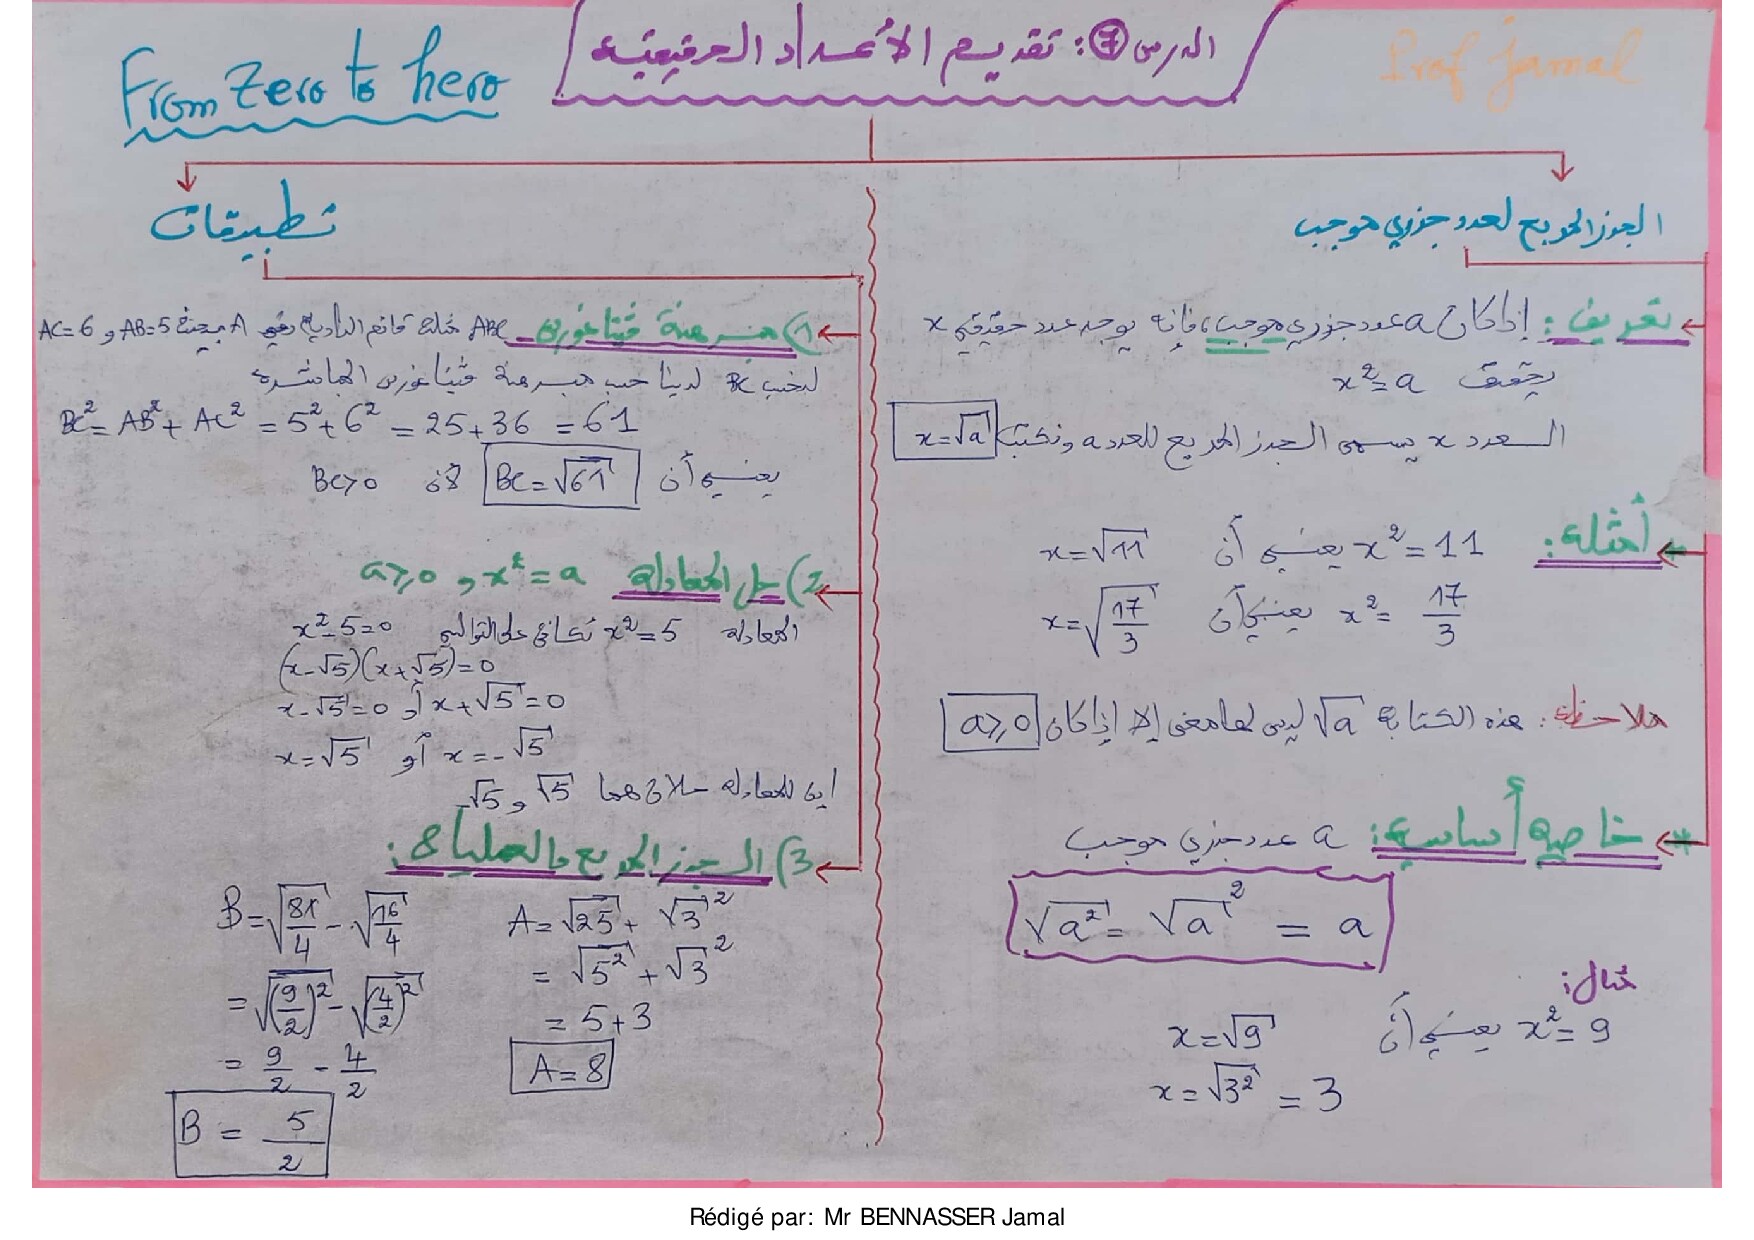 From Zero to hero
الدرس 7: تقديم الأعداد الحقيقية
Prof jamal
الجذر المربع لعدد جذري موجب
تعريف: إذا كان a عدد جذري موجب، فإنه يوجد عدد حقيقي x
يحقق x²=a
العدد x يسمى الجذر المربع للعدد a ونكتب x=√a
أمثلة: x²=11 يعني أن x=√11
x²=17/3 يعني أن x=√(17/3)
ملاحظة: هذه الكتابة √a ليس لها معنى إلا إذا كان a⩾0
* خاصية أساسية: a عدد جذري موجب
√a² = √a² = a
مثال:
x²=9 يعني أن x=√9
x=√3² = 3
تطبيقات
1) مبرهنة فيتاغورس ABC مثلث قائم الزاوية في A بحيث AB=5 و AC=6
لنحسب BC لدينا حسب مبرهنة فيتاغورس المباشرة
BC²=AB²+AC²=5²+6²=25+36=61
يعني أن BC=√61 لأن BC>0
2) حل المعادلة x²=a و a⩾0
المعادلة x²=5 تكافئ على التوالي x²-5=0
(x-√5)(x+√5)=0
x-√5=0 أو x+√5=0
x=√5 أو x=-√5
إذن للمعادلة حلان هما √5 و -√5
3) الجذر المربع والعمليات:
A=√25+√3²
=√5²+√3²
=5+3
A=8
B=√(81/4)-√(16/4)
=√(9/2)²-√(4/2)²
=9/2-4/2
B=5/2
Rédigé par: Mr BENNASSER Jamal